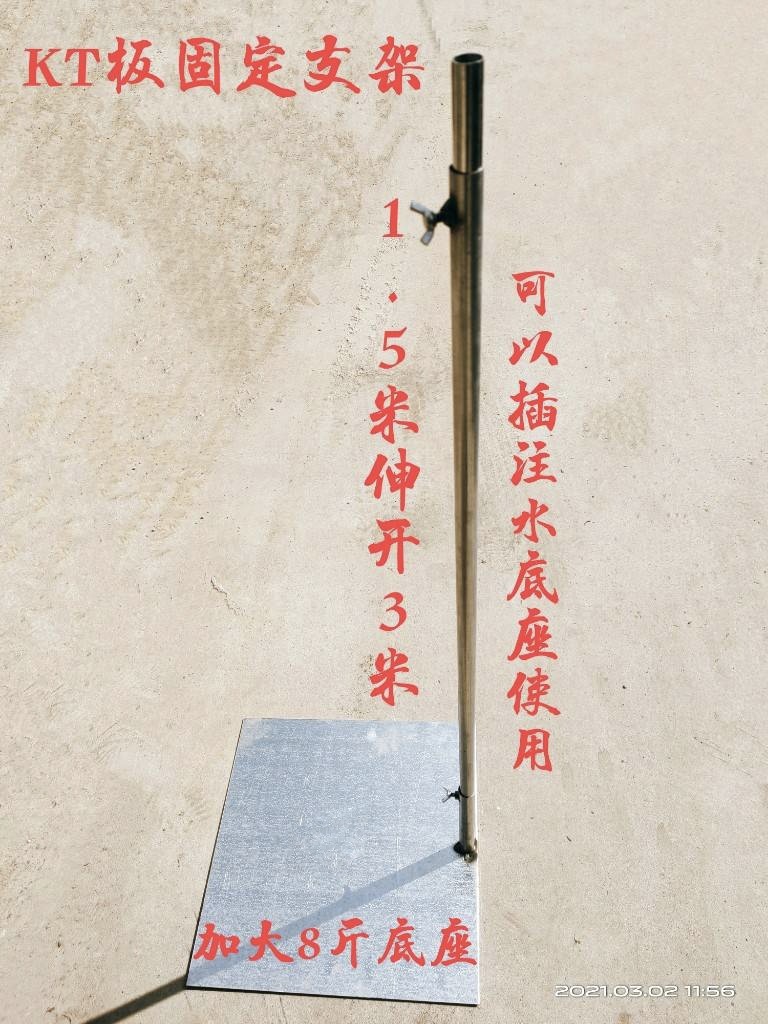 KT板固定支架
1.5米伸开3米
可以插注水底座使用
加大8斤底座
2021.03.02 11:56